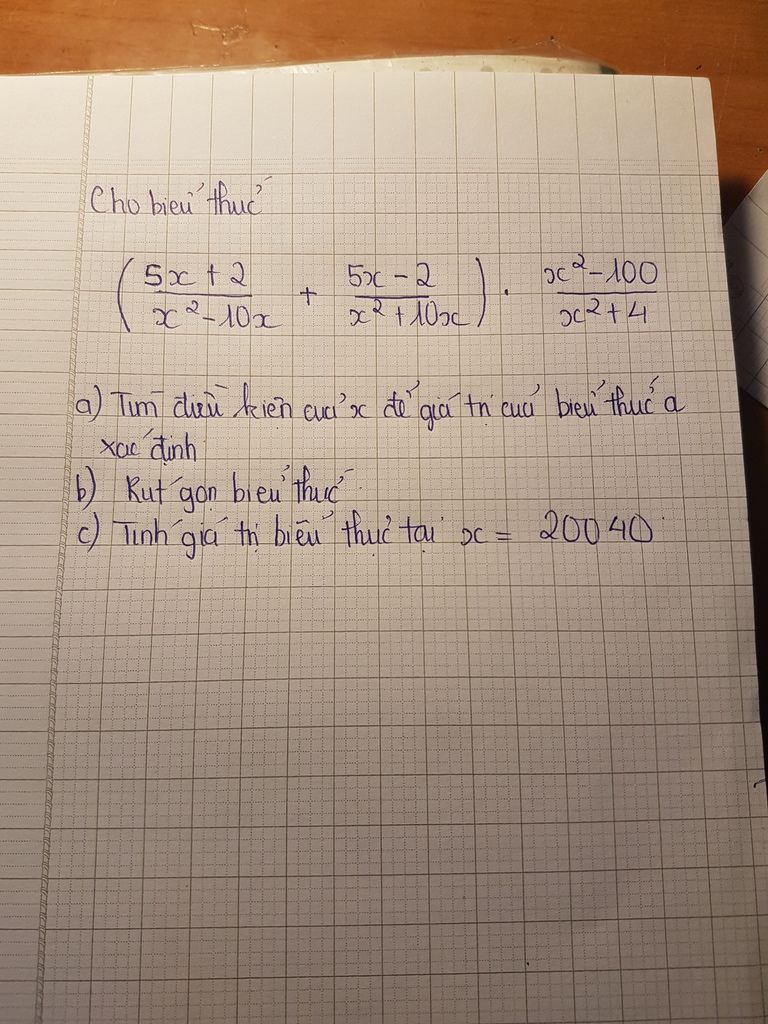 Cho biểu thức
(5x + 2 / x² - 10x + 5x - 2 / x² + 10x) . x² - 100 / x² + 4
a) Tìm điều kiện của x để giá trị của biểu thức a
xác định
b) Rút gọn biểu thức
c) Tính giá trị biểu thức tại x = 20040